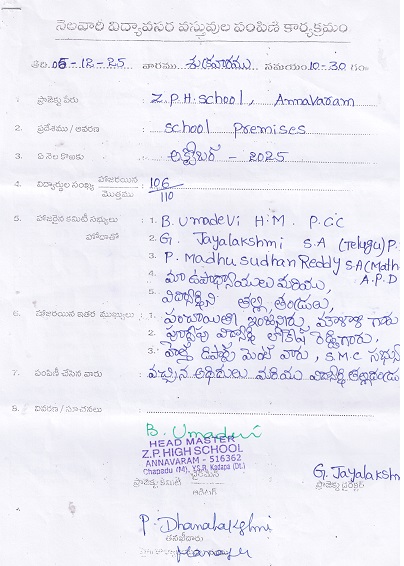 నెలవారి విద్యావసర వస్తువుల పంపిణి కార్యక్రమం
తేది. 05-12-25 వారము శుక్రవారము సమయం 10-30 గం
1. ప్రాజెక్టు పేరు : Z.P.H.school, Annavaram
2. ప్రదేశము / ఆవరణ : school Premises
3. ఏ నెల కొఱకు : అక్టోబర్ - 2025
4. విద్యార్థుల సంఖ్య హాజరయిన / మొత్తము : 106 / 110
5. హాజరైన కమిటీ సభ్యులు : 1. B. Umadevi H.M. P.C.C
హోదాతో 2. G. Jayalakshmi S.A (Telugu) P.
3. P. Madhu sudhan Reddy S.A (Math
4. మా ఉపాధ్యాయులు మరియు, A.P.D
5. విద్యార్థుల తల్లి, తండ్రులు,
6. హాజరయిన ఇతర ముఖ్యులు : 1. పంచాయితి ఇంజినీరు, గారు
2. పూర్వపు విద్యార్థి లోకేష్ రెడ్డిగారు,
3. హెల్త్ డిపార్టు మెంట్ వారు, S.M.C సభ్యు
7. పంపిణీ చేసిన వారు : వచ్చిన అతిధులు మరియు విద్యార్థి తల్లిదండ్రు
8. వివరణ / సూచనలు :
B. Umadevi
HEAD MASTER
Z.P. HIGH SCHOOL
ANNAVARAM - 516362
Chapadu (M), Y.S.R. Kadapa (Dt.)
ఛైర్మన్
ప్రాజెక్టు కమిటి
G. Jayalakshm
ప్రాజెక్టు డైరెక్టర్
P. Dhanalakshmi
Manager